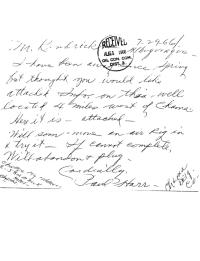 7-29-66
Albuquerque
Mr. Kendrick
RECEIVED
AUG 1 1966
OIL CON. COM.
DIST. 3
I have been since Spring
but thought you would like
attached Infor on this well
located 4 miles west of Chama
Here it is — attached —
Will soon move an air Rig in
& try it — If cannot complete,
Will abandon & plug.
Cordially,
Paul